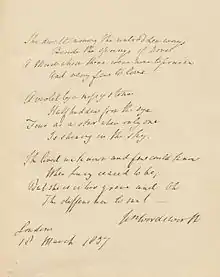 She dwelt among the untrodden ways
Beside the springs of Dove
A Maid whom there were none to praise
And very few to love.
A violet by a mossy stone
Half hidden from the eye
Fair as a star when only one
Is shining in the sky.
She lived unknown and few could know
When Lucy ceased to be,
But she is in her grave and Oh
The difference to me!
Wm Wordsworth
London
18 March 1837